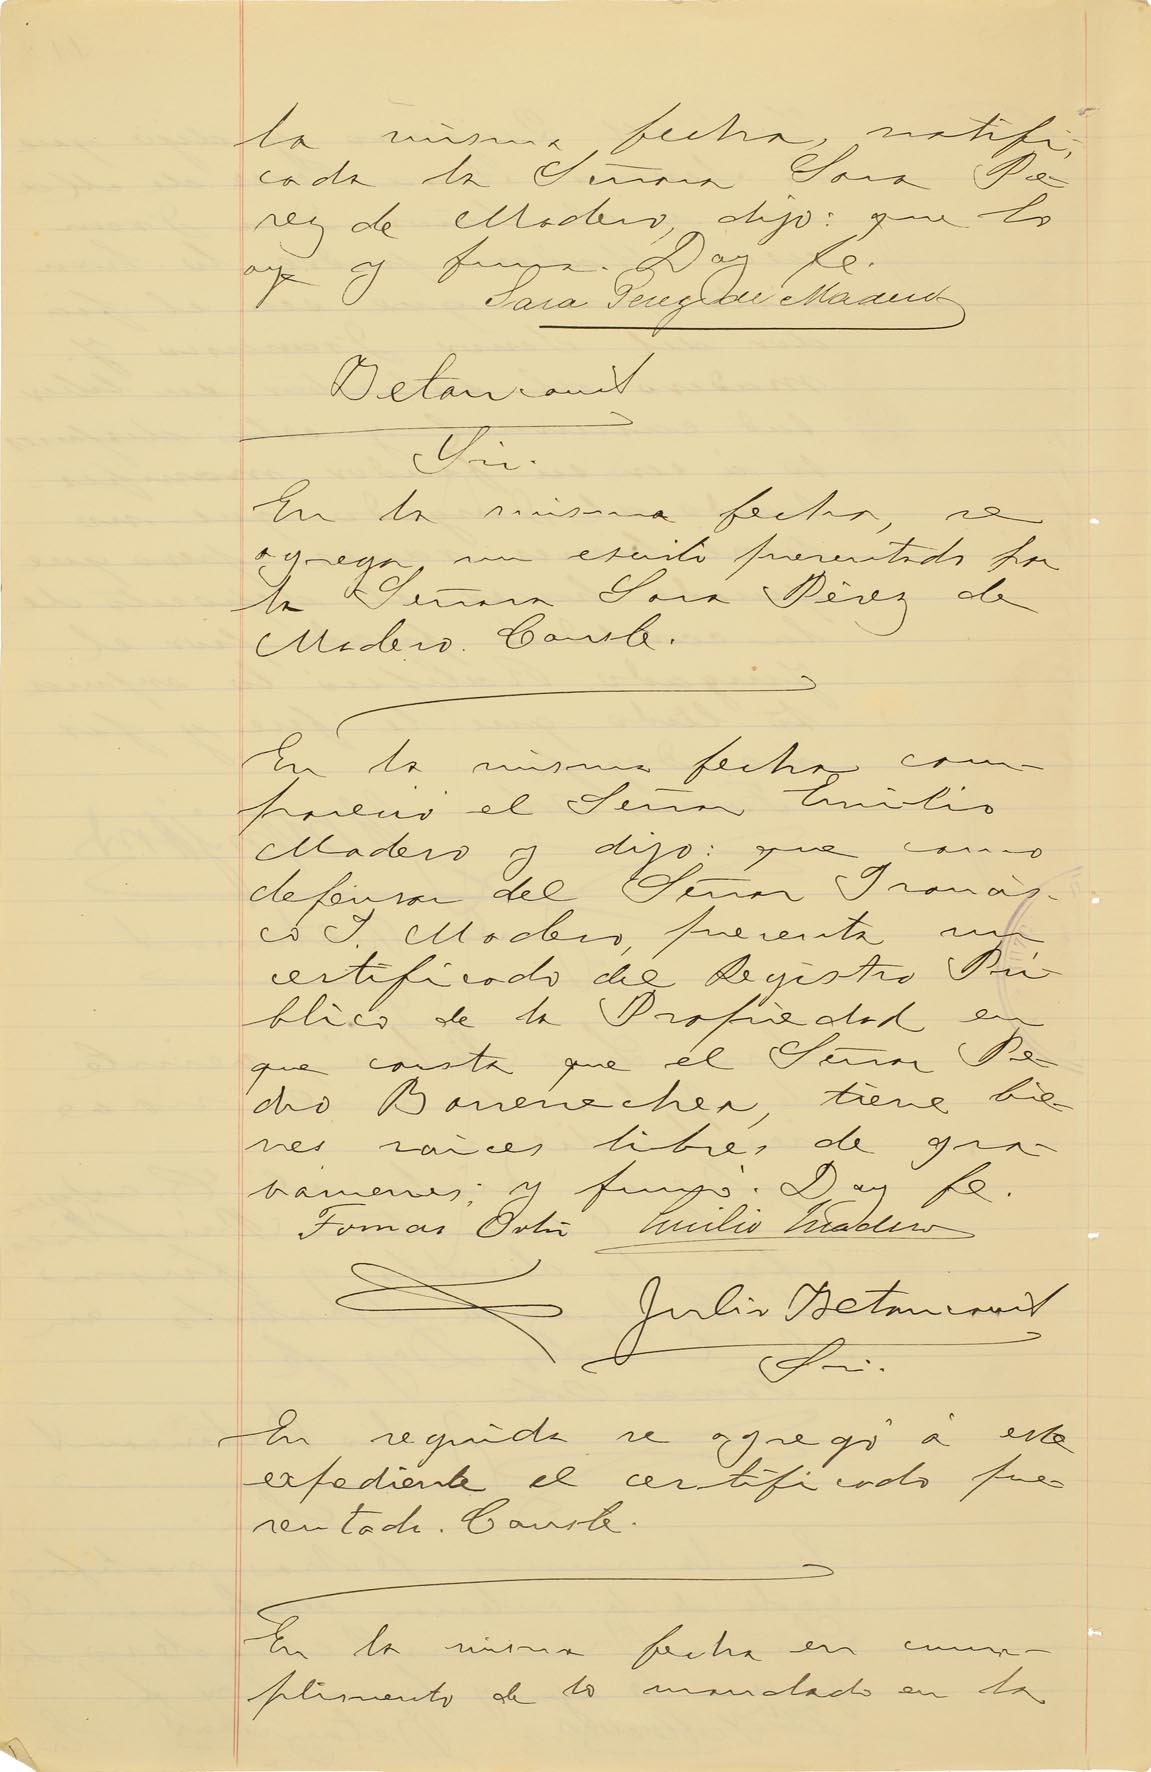 la misma fecha, notifi-
cada la Señora Sara Pé-
rez de Madero, dijo: que lo
oye y firma. Doy fe.
Sara Perez de Madero
Betancourt
Srio.
En la misma fecha, se
agrega un escrito presentado por
la Señora Sara Pérez de
Madero. Conste.
En la misma fecha com-
pareció el Señor Emilio
Madero y dijo: que como
defensor del Señor Francis-
co I. Madero, presenta un
certificado del Registro Pú-
blico de la Propiedad en
que consta que el Señor Pe-
dro Barrenechea, tiene bie-
nes raíces libres de gra-
vámenes; y firmó. Doy fe.
Tomas Ortiz Emilio Madero
Julio Betancourt
Srio.
En seguida se agregó á este
expediente el certificado pre-
sentado. Conste.
En la misma fecha en cum-
plimiento de lo mandado en la